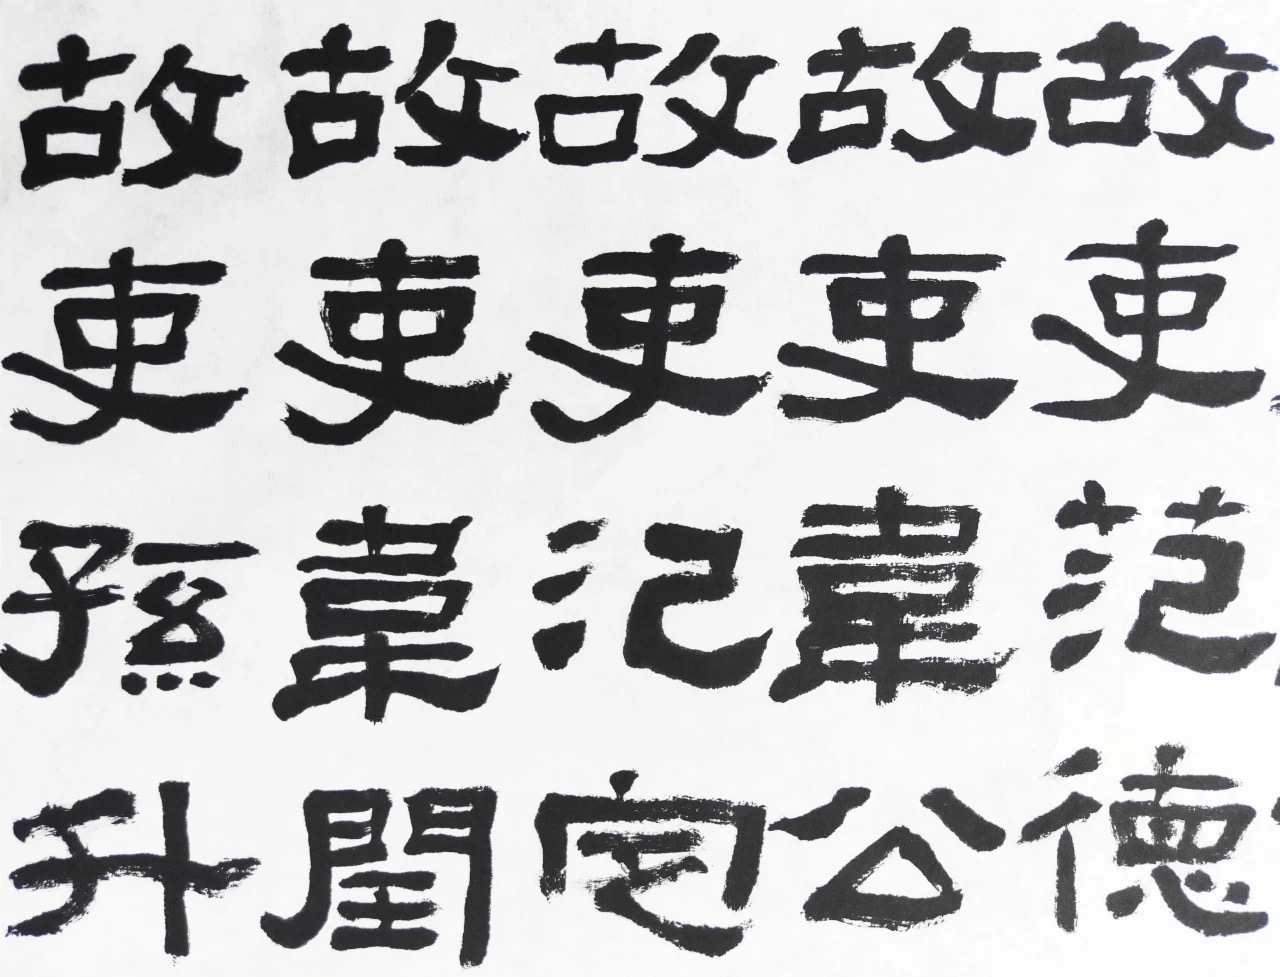 故吏范德
故吏韋公
故吏氾定
故吏韋閏
故吏孫升